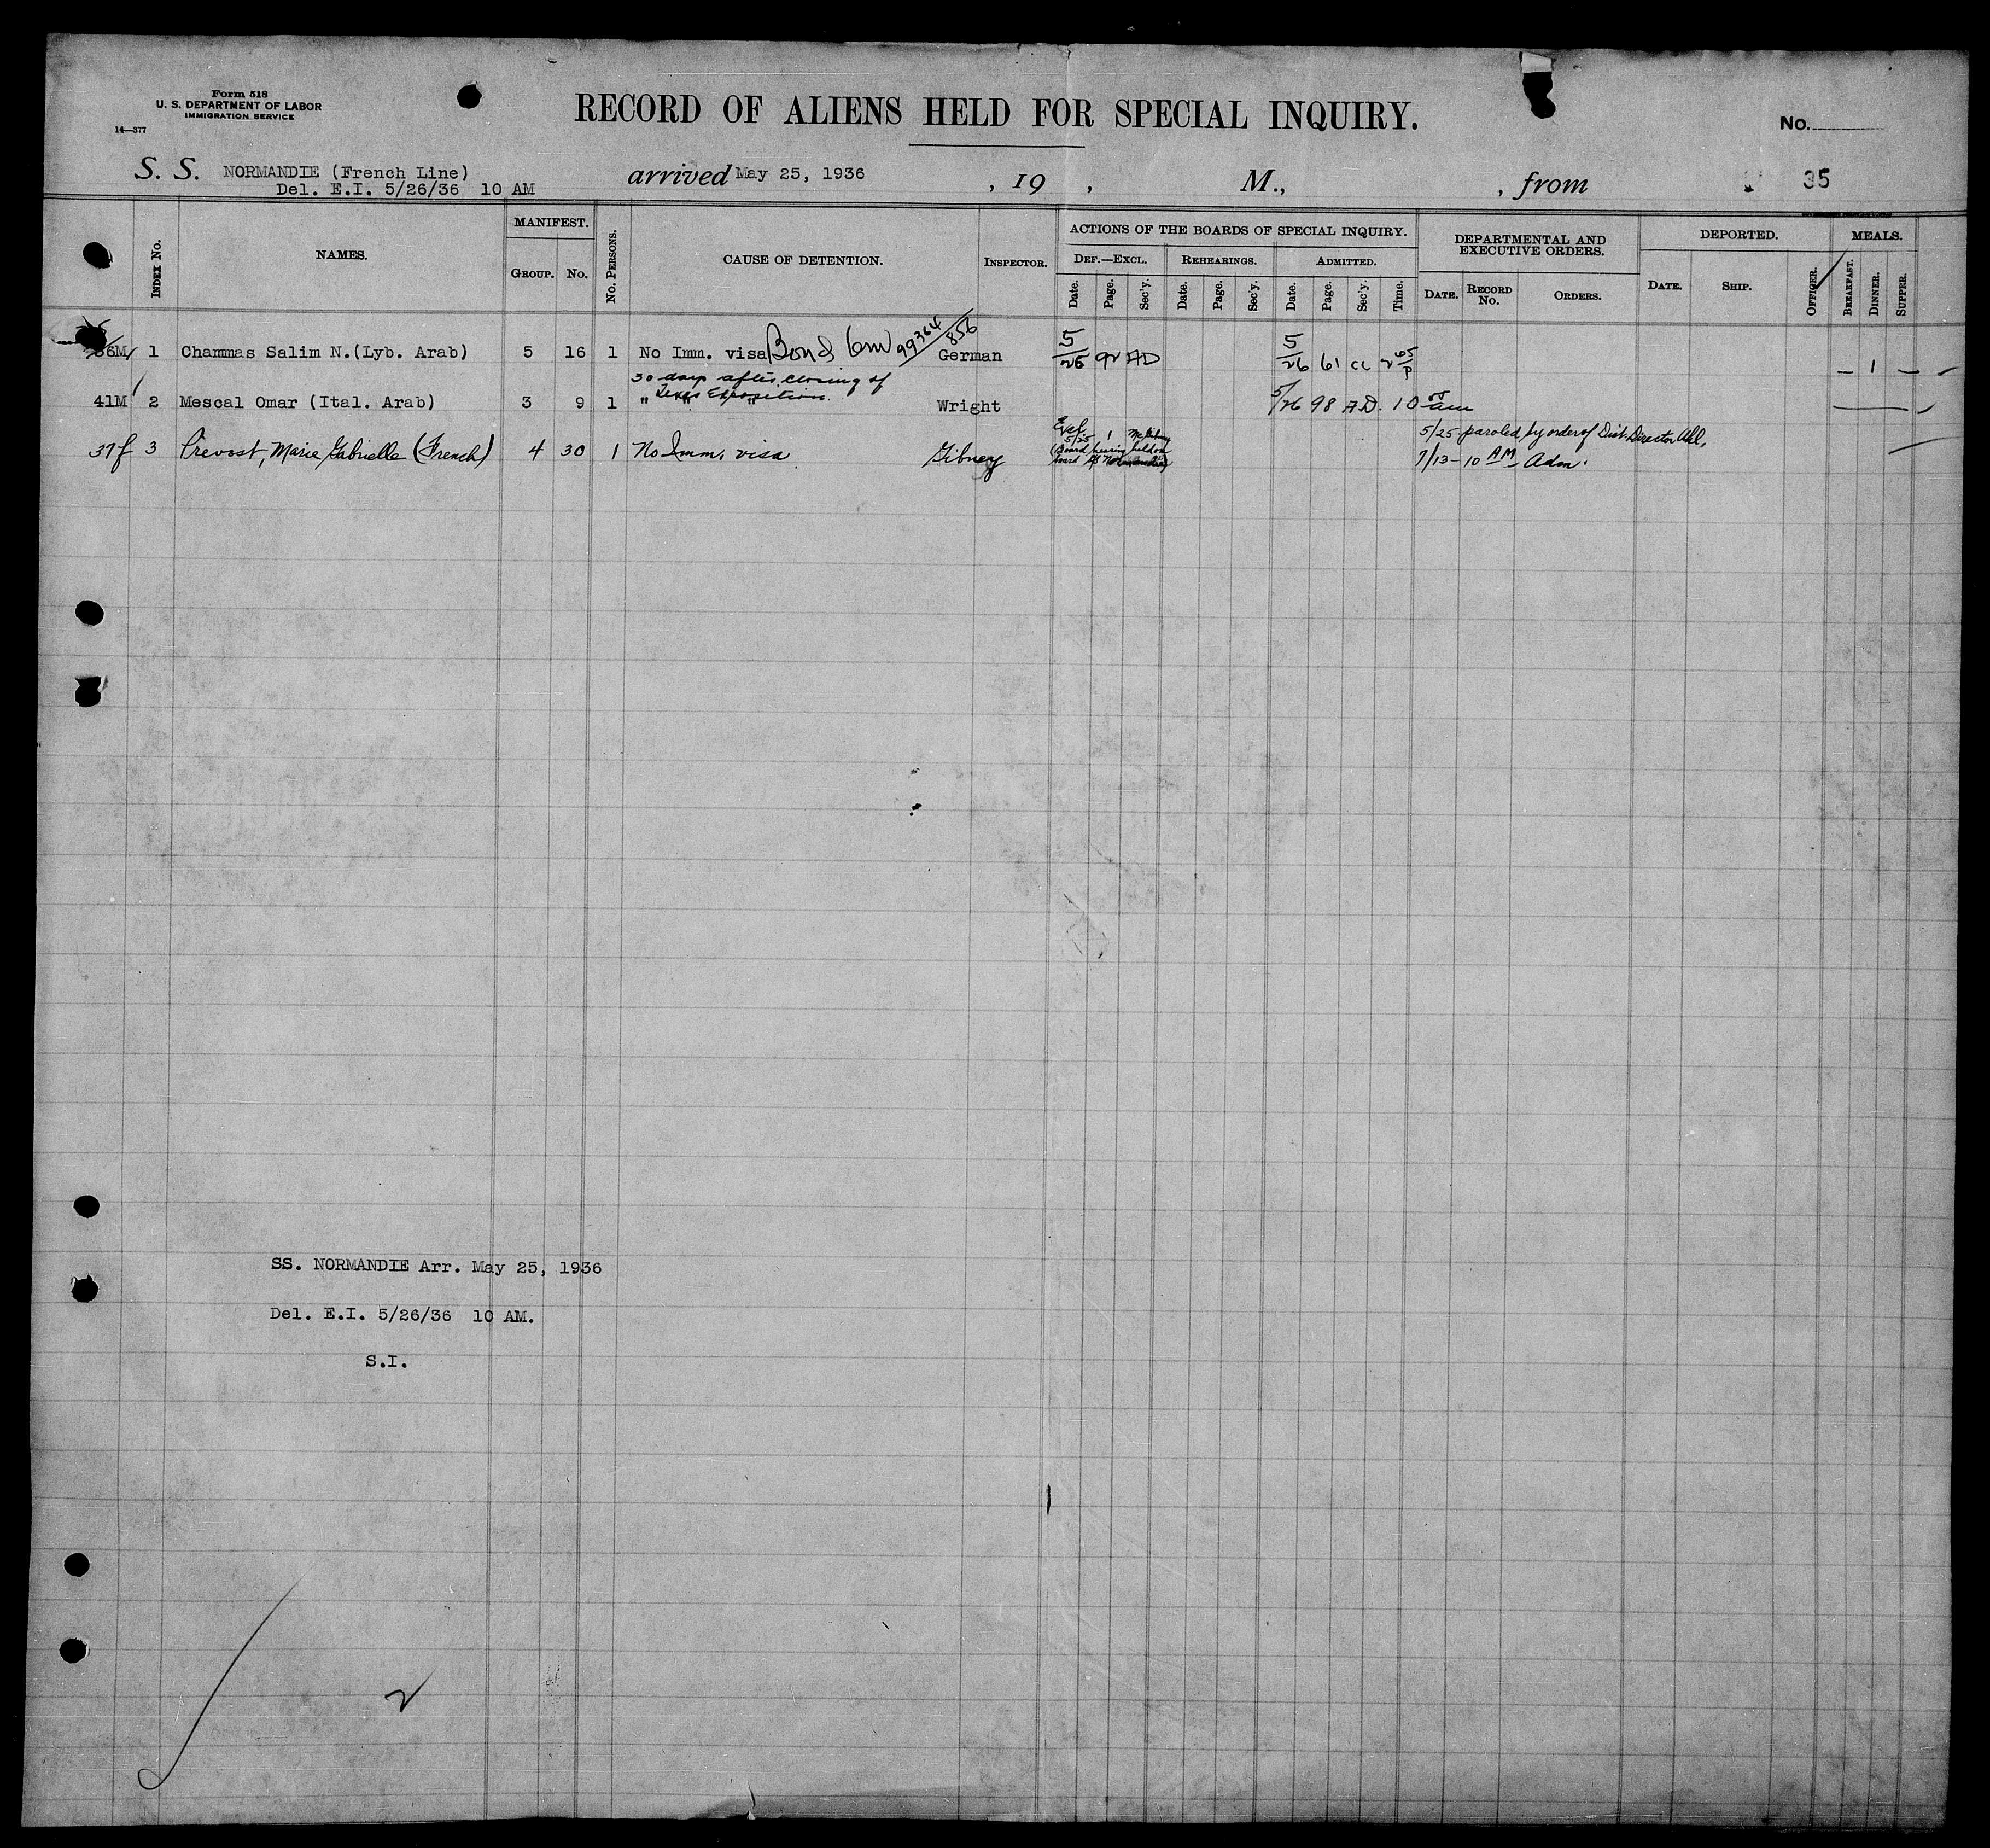 Form 518
U. S. DEPARTMENT OF LABOR
IMMIGRATION SERVICE
14—377
RECORD OF ALIENS HELD FOR SPECIAL INQUIRY.
No.
S. S. NORMANDIE (French Line) arrived May 25, 1936 , 19 , M., , from 35
Del. E.I. 5/26/36 10 AM
INDEX No. NAMES. MANIFEST. GROUP. No. No. PERSONS. CAUSE OF DETENTION. INSPECTOR. ACTIONS OF THE BOARDS OF SPECIAL INQUIRY. DEF.—EXCL. Date. Page. Sec'y. REHEARINGS. Date. Page. Sec'y. ADMITTED. Date. Page. Sec'y. Time. DEPARTMENTAL AND EXECUTIVE ORDERS. DATE. RECORD No. ORDERS. DEPORTED. DATE. SHIP. OFFICER. MEALS. BREAKFAST. DINNER. SUPPER.
36M 1 Chammas Salim N.(Lyb. Arab) 5 16 1 No Imm. visa Bond 6m 99364/856 German 5/25 92 AD 5/26 61 CC 2 45/P — 1 —
30 days after closing of
Texas Exposition.
41M 2 Mescal Omar (Ital. Arab) 3 9 1 " " " Wright 5/26 98 A.D. 10 05 am
37f 3 Prevost, Marie Gabrielle (French) 4 30 1 No Imm. visa Gibney Excl 5/25 1 (Board hearing held on board SS Normandie) 5/25 - paroled by order of Dist Director
7/13 - 10 AM - Adm.
SS. NORMANDIE Arr. May 25, 1936
Del. E.I. 5/26/36 10 AM.
S.I.
2